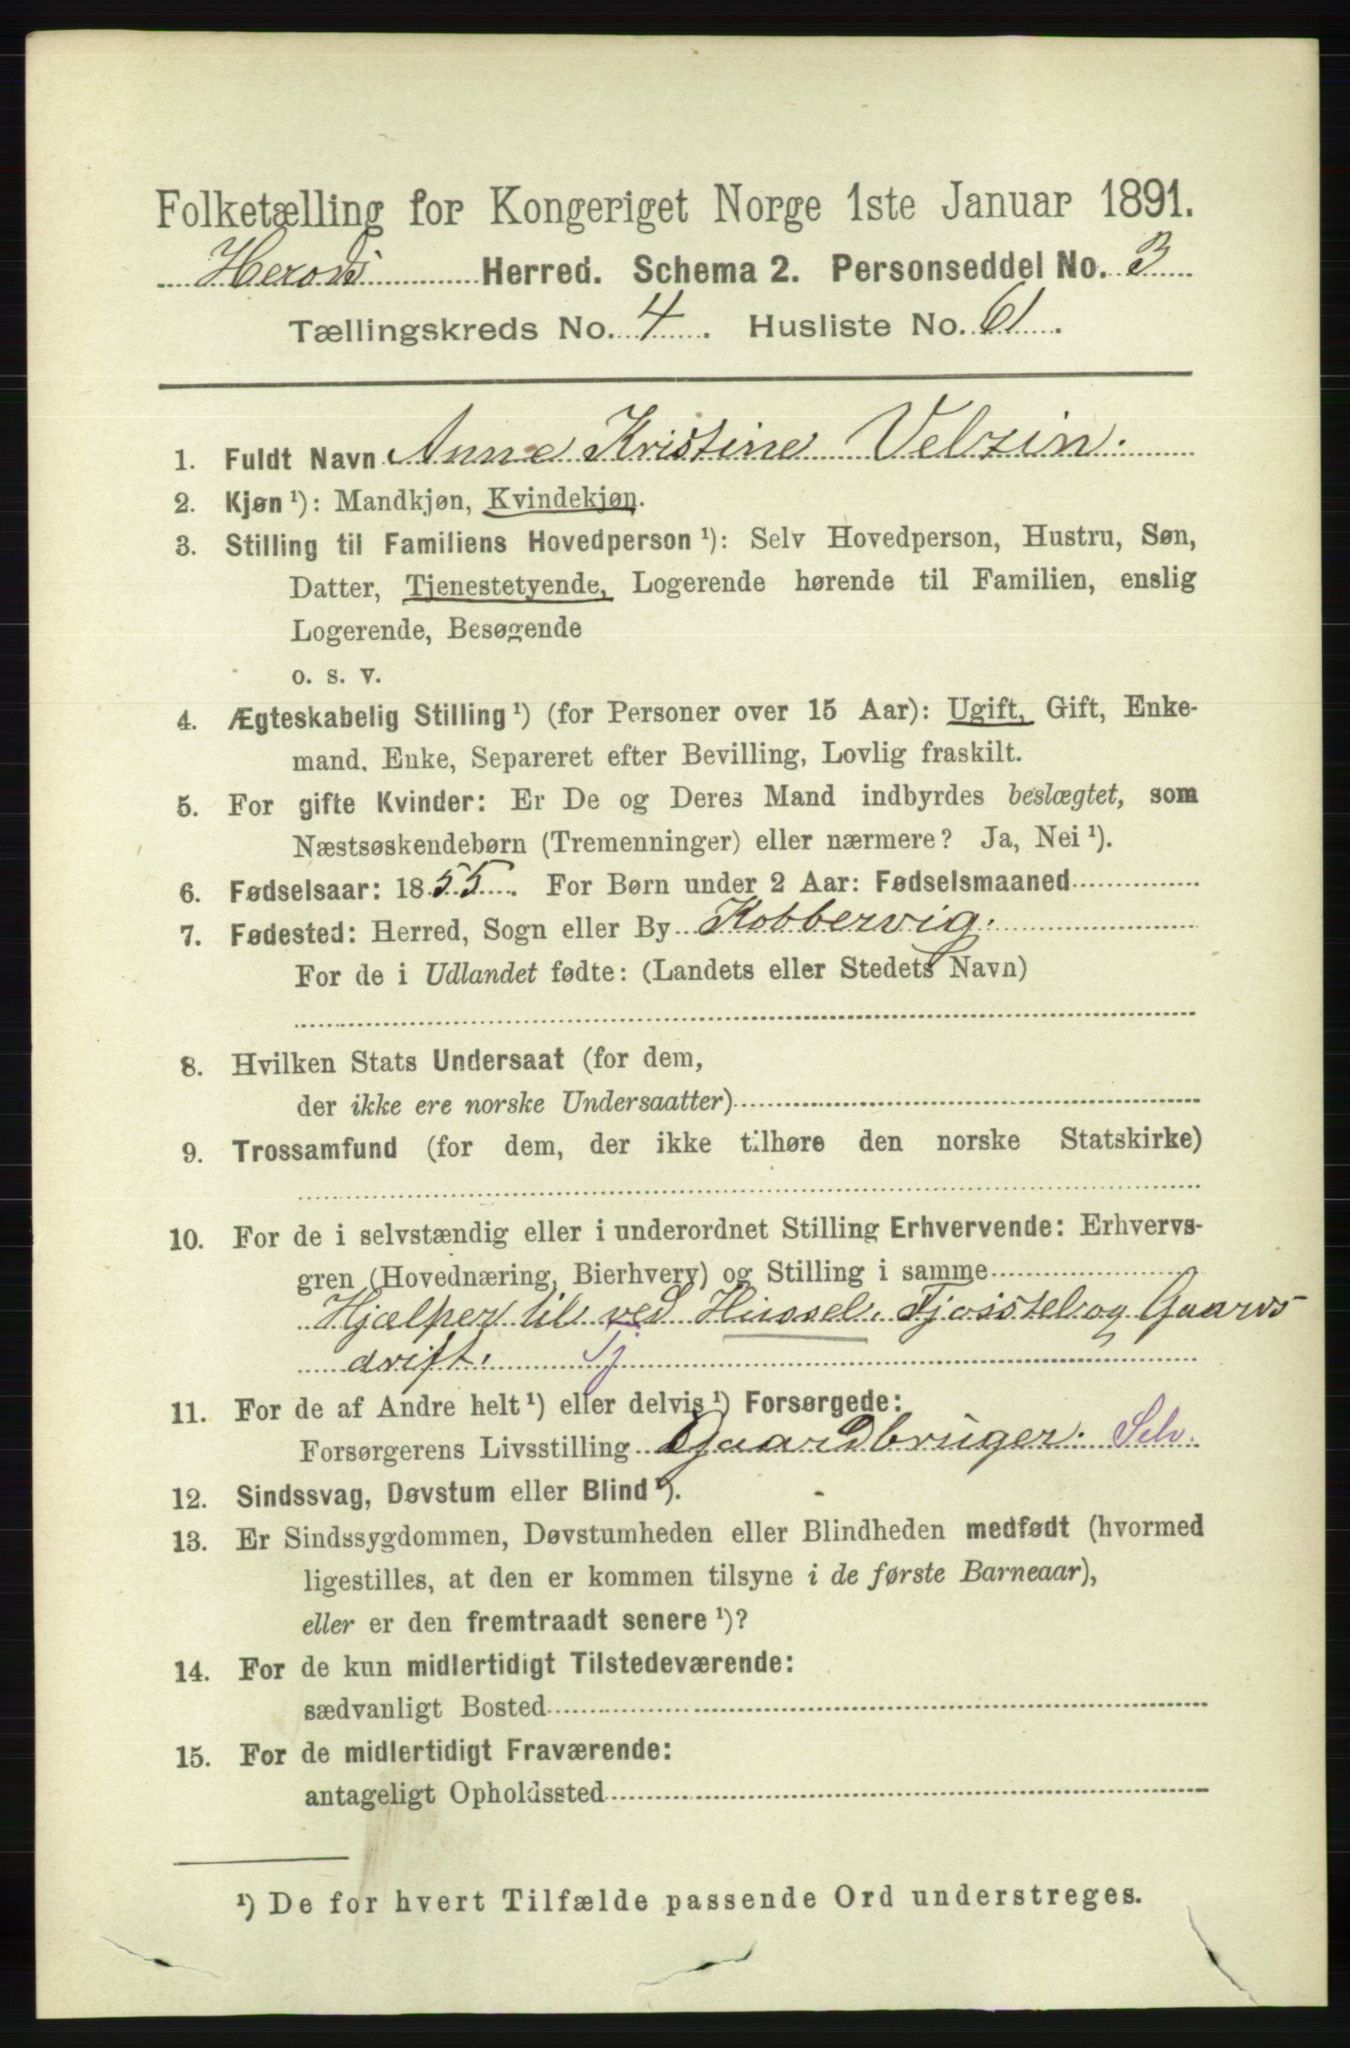 Folketælling for Kongeriget Norge 1ste Januar 1891.
Herods Herred. Schema 2. Personseddel No. 3
Tællingskreds No. 4. Husliste No. 61.
1. Fuldt Navn Anne Kristine Velzin.
2. Kjøn ¹): Mandkjøn, Kvindekjøn.
3. Stilling til Familiens Hovedperson ¹): Selv Hovedperson, Hustru, Søn,
Datter, Tjenestetyende, Logerende hørende til Familien, enslig
Logerende, Besøgende
o. s. v.
4. Ægteskabelig Stilling ¹) (for Personer over 15 Aar): Ugift, Gift, Enke-
mand, Enke, Separeret efter Bevilling, Lovlig fraskilt.
5. For gifte Kvinder: Er De og Deres Mand indbyrdes beslægtet, som
Næstsøskendebørn (Tremenninger) eller nærmere? Ja, Nei ¹).
6. Fødselsaar: 1855. For Børn under 2 Aar: Fødselsmaaned
7. Fødested: Herred, Sogn eller By Kobbervig.
For de i Udlandet fødte: (Landets eller Stedets Navn)
8. Hvilken Stats Undersaat (for dem,
der ikke ere norske Undersaatter)
9. Trossamfund (for dem, der ikke tilhøre den norske Statskirke)
10. For de i selvstændig eller i underordnet Stilling Erhvervende: Erhvervs-
gren (Hovednæring, Bierhverv) og Stilling i samme
Hjælper til ved Hussel, Fjosstel og Gaards
drift. Tj
11. For de af Andre helt ¹) eller delvis ¹) Forsørgede:
Forsørgerens Livsstilling Gaardbruger. Selv.
12. Sindssvag, Døvstum eller Blind ¹).
13. Er Sindssygdommen, Døvstumheden eller Blindheden medfødt (hvormed
ligestilles, at den er kommen tilsyne i de første Barneaar),
eller er den fremtraadt senere ¹)?
14. For de kun midlertidigt Tilstedeværende:
sædvanligt Bosted
15. For de midlertidigt Fraværende:
antageligt Opholdssted
¹) De for hvert Tilfælde passende Ord understreges.